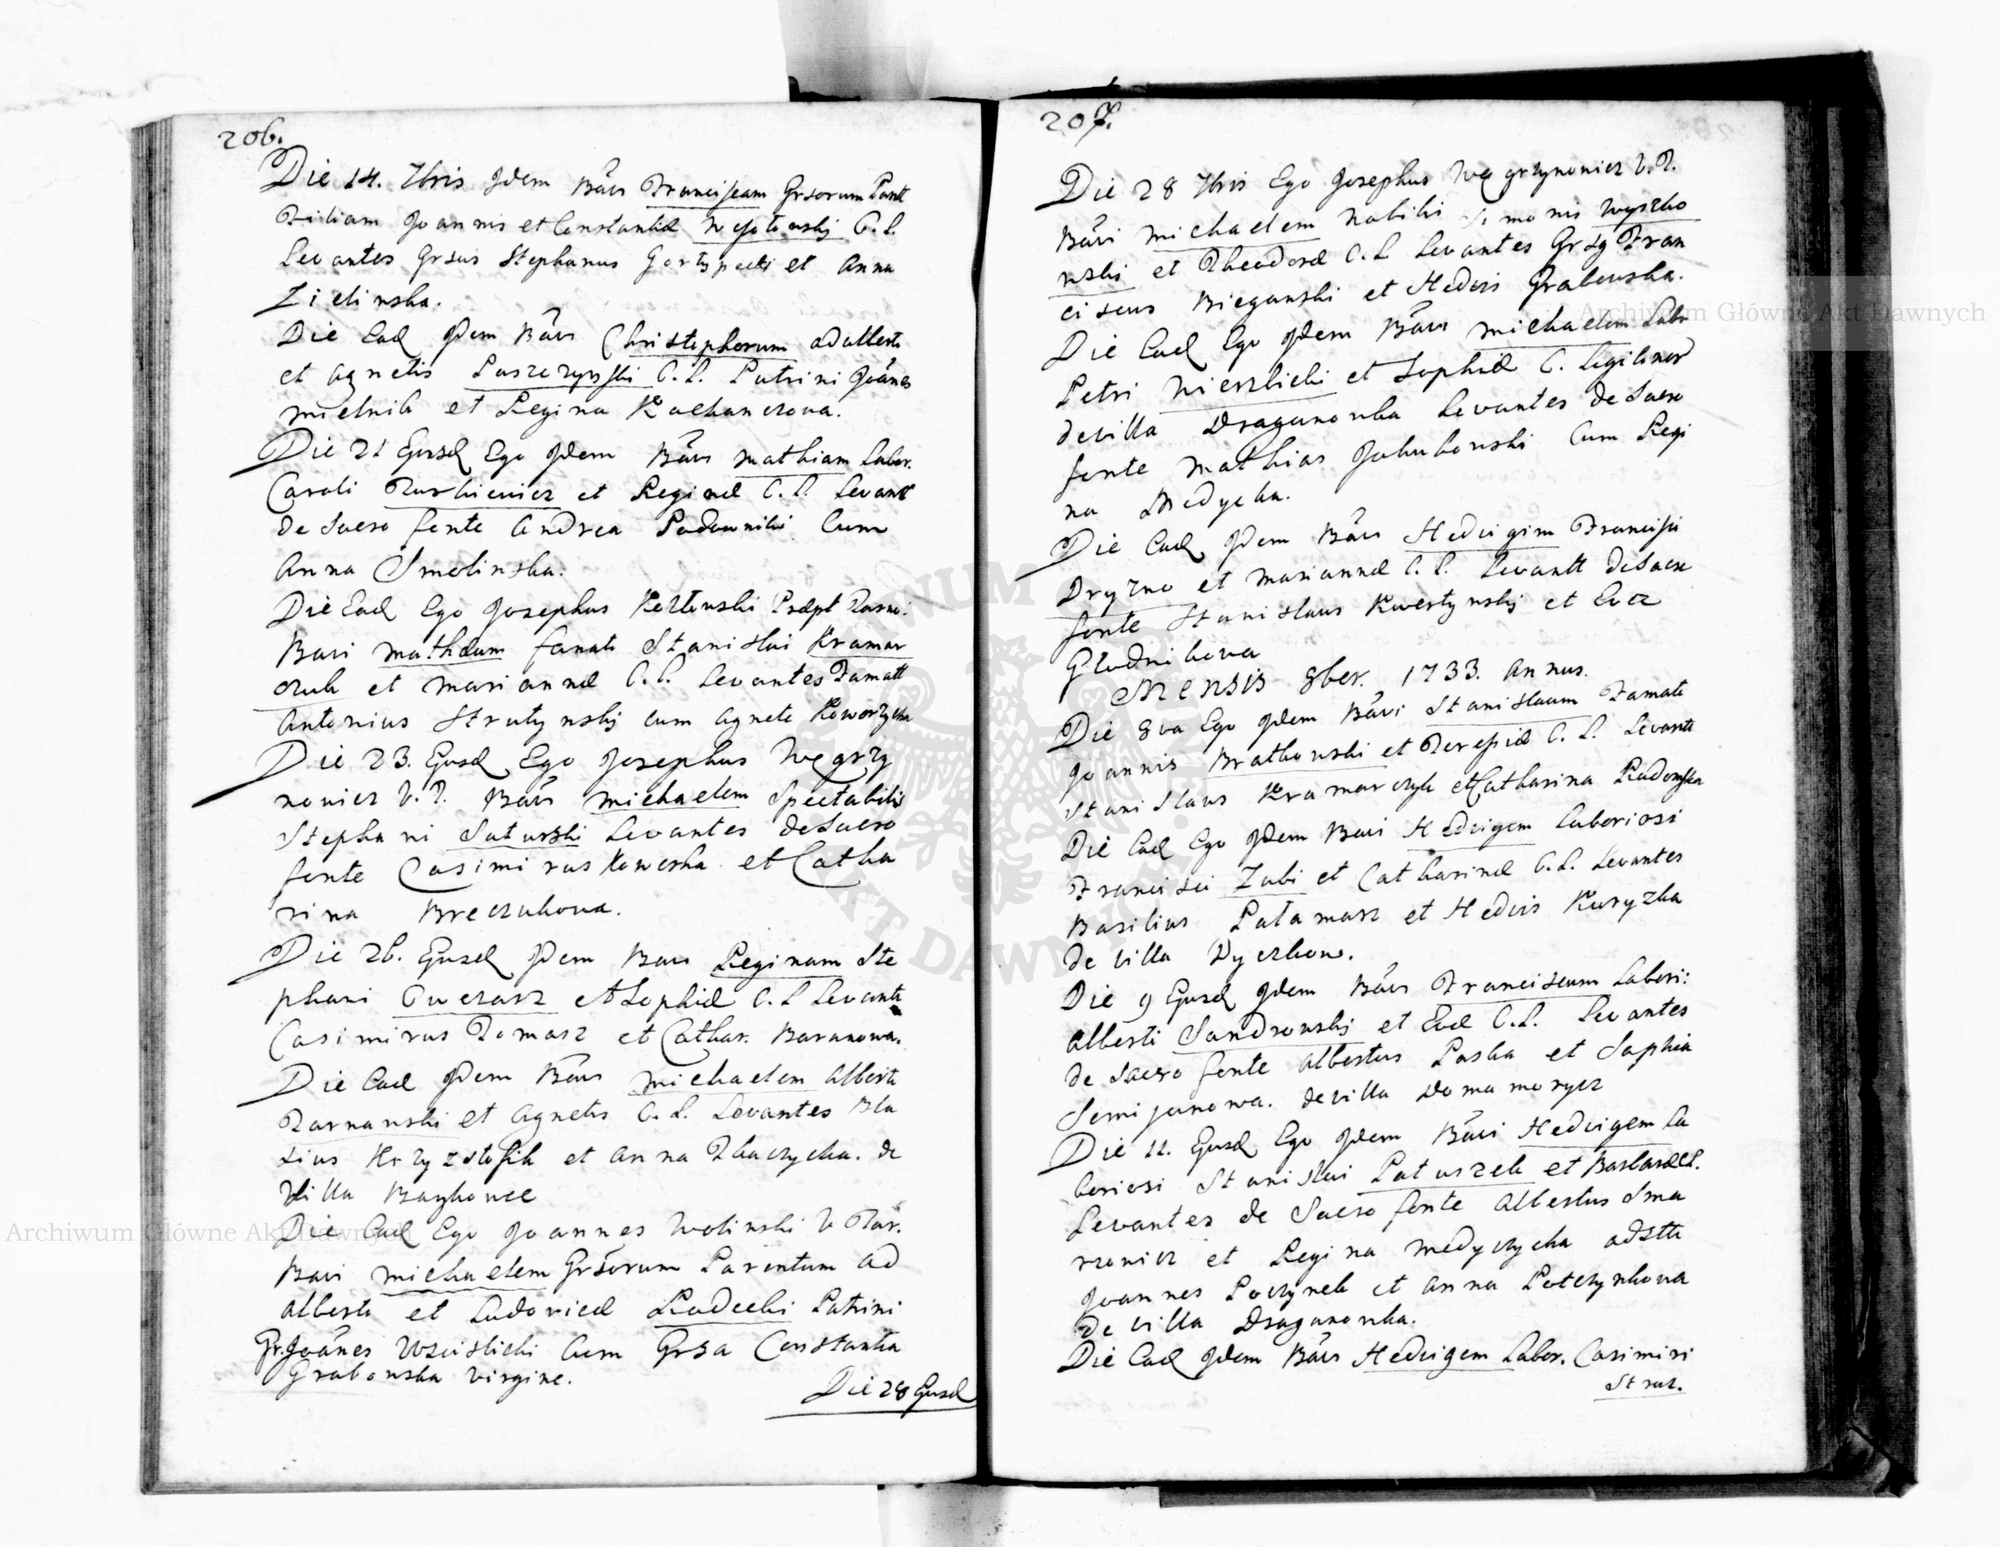 206.
Die 14. 7bris Idem Bavi Franciscam Grsorum Parent
Filiam Joannis et Constantiæ Wesołowskj C. L.
Levantes Grsus Stephanus et Anna
Zielinska.
Die Ead Idem Bavi Christophorum Adalberti
et Agnetis Paszczynski C. L. Patrini Joānes
Mielnik et Regina Kochanczowa.
Die 21 Eiusd Ego Idem Bavi Mathiam Labor.
Caroli Turkiewicz et Reginæ C. L. Levant
de Sacro fonte Andrea Padowniki Cum
Anna Smolinska.
Die Ead Ego Josephus Kozłowski Præpt Tarno:
Bavi Mathæum famati Stanislai Kramar
czuk et Mariannæ C. L. Levantes Famatt
Antonius Strutynskj cum Agnete Koworzycka
Die 23. Eiusd Ego Josephus Węgrzy
nowicz V. T. Bavi Michaelem Spectabilis
Stephani Saturski Levantes de Sacro
fonte Casimirus Kowcska et Catha
rina Breczukowa.
Die 26. Eiusd Idem Bavi Reginam Ste
phani Owczarz et Sophiæ C. L Levante
Casimirus Tomasz et Cathar. Baranowa.
Die Ead Idem Bavi Michaelem Alberti
Tarnawski et Agnetis C. L. Levantes Bla
sius Krzyzstofik et Anna Tkaczycka. de
Villa Baykowce
Die Ead Ego Joannes Wolinski V Tar.
Bavi Michaelem Grsorum Parentum Ad
alberti et Ludovicæ Radecki Patrini
Gr. Joānes Wzislicki Cum Grsa Constantia
Grabowska virgine.
Die 28 Eiusd
207.
Die 28 7bris Ego Josephus Węgrzynowicz V. T.
Bavi Michaelem Nobilis Simonis Wyszko
wski et Theodoræ C. L Levantes Grsq Fran
ciscus Bieganski et Hedvis Grabowska.
Die Ead Ego Idem Bavi Michaelem Labr
Petri Wierzbicki et Sophiæ C. Legitimor
de villa Draganowka Levantes de Sacro
fonte Mathias Jakubowski Cum Regi
na Medycka.
Die Ead Idem Bavi Hedvigim Francisci
Dryzno et Mariannæ C. L. Levantt de Sacro
fonte Stanislaus Kwertynskj et Eva
Głodnikowa
Mensis 8ber. 1733. Annus.
Die 8va Ego Idem Bavi Stanislaum Famati
Joannis Bratkowski et Teresiæ C. L. Levantt
Stanislaus Kramarczyk et Catharina Radomska
Die Ead Ego Idem Bavi Hedvigem Laboriosi
Francisci Zubi et Catharinæ C. L. Levantes
Basilius Patamarz et Hedvis Kuryzka
de Villa Dyczkow.
Die 9 Eiusd Idem Bavi Franciscum Labori:
Alberti Sandrowskj et Evæ C. L. Levantes
de Sacro fonte Albertus Paska et Sophia
Semijanowa. de villa Domamorycz
Die 12. Eiusd Ego Idem Bavi Hedvigem La
boriosi Stanislai Patuszek et Barbaræ C L.
Levantes de Sacro fonte Albertus Sma
rzowicz et Regina Medyczycka adstti
Joannes Poczynek et Anna Potczynkowa
de villa Draganowka.
Die Ead Idem Bavi Hedvigem Labor. Casimiri
Straz.
Archiwum Główne Akt Dawnych
Archiwum Główne Akt Dawnych